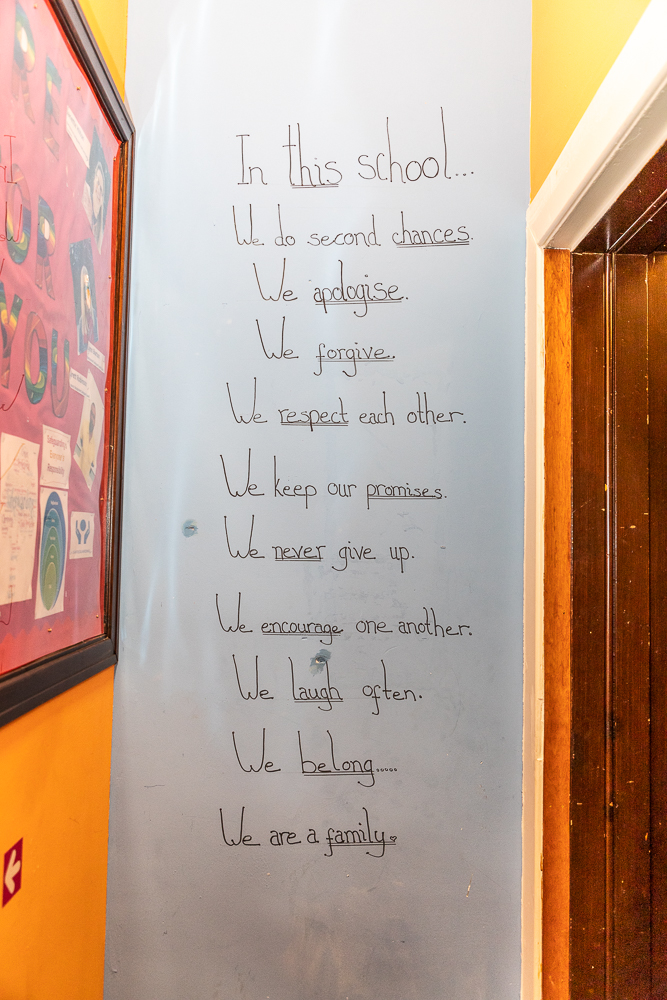 In this school...
We do second chances.
We apologise.
We forgive.
We respect each other.
We keep our promises.
We never give up.
We encourage one another.
We laugh often.
We belong.....
We are a family.
YOU